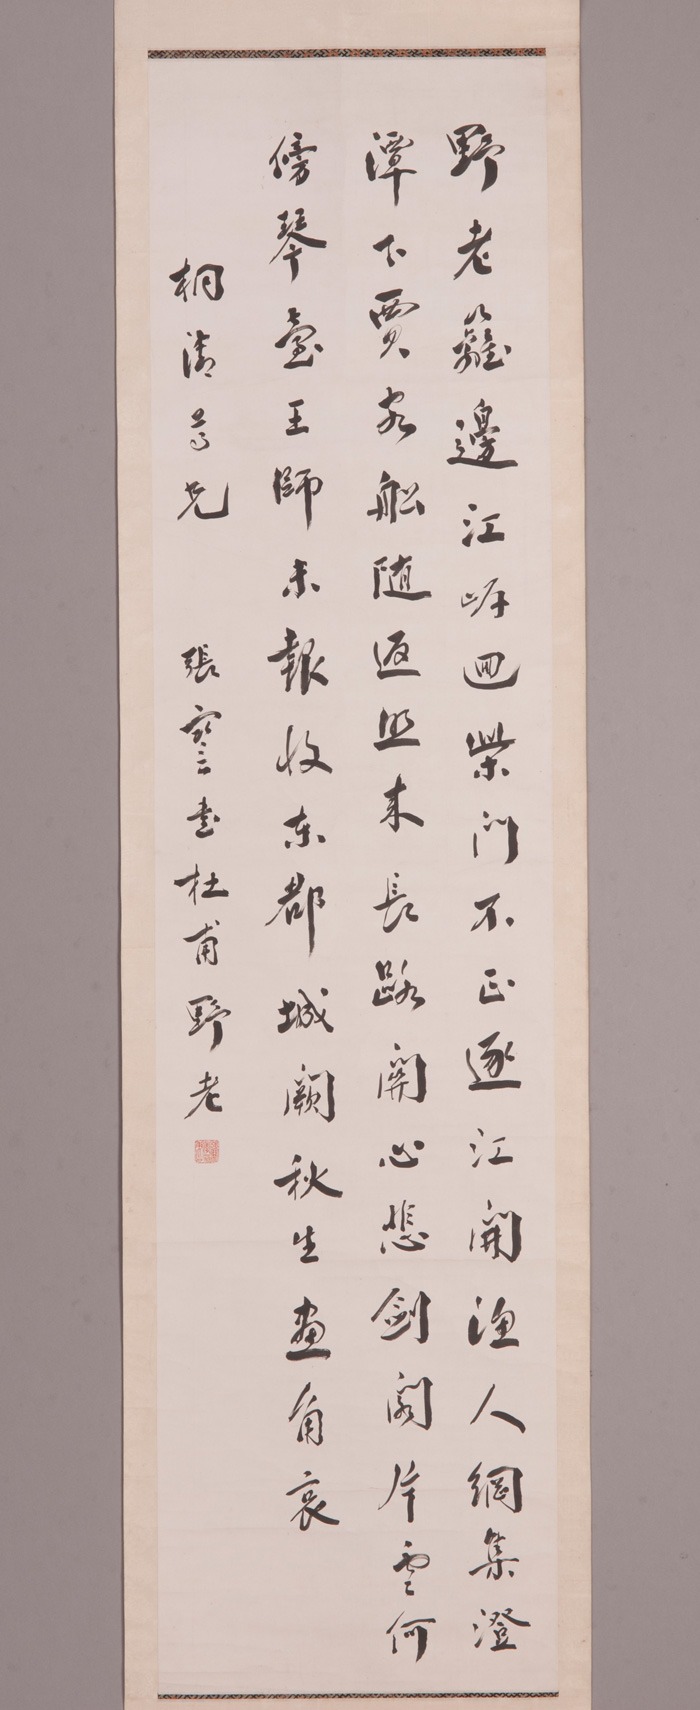 野老籬邊江岸迴柴門不正逐江開漁人網集澄
潭下賈客船随返照來長路關心悲劍閣片雲何
傍琴臺王師未報收東都城闕秋生畫角哀
桐尊兄 張謇書杜甫野老